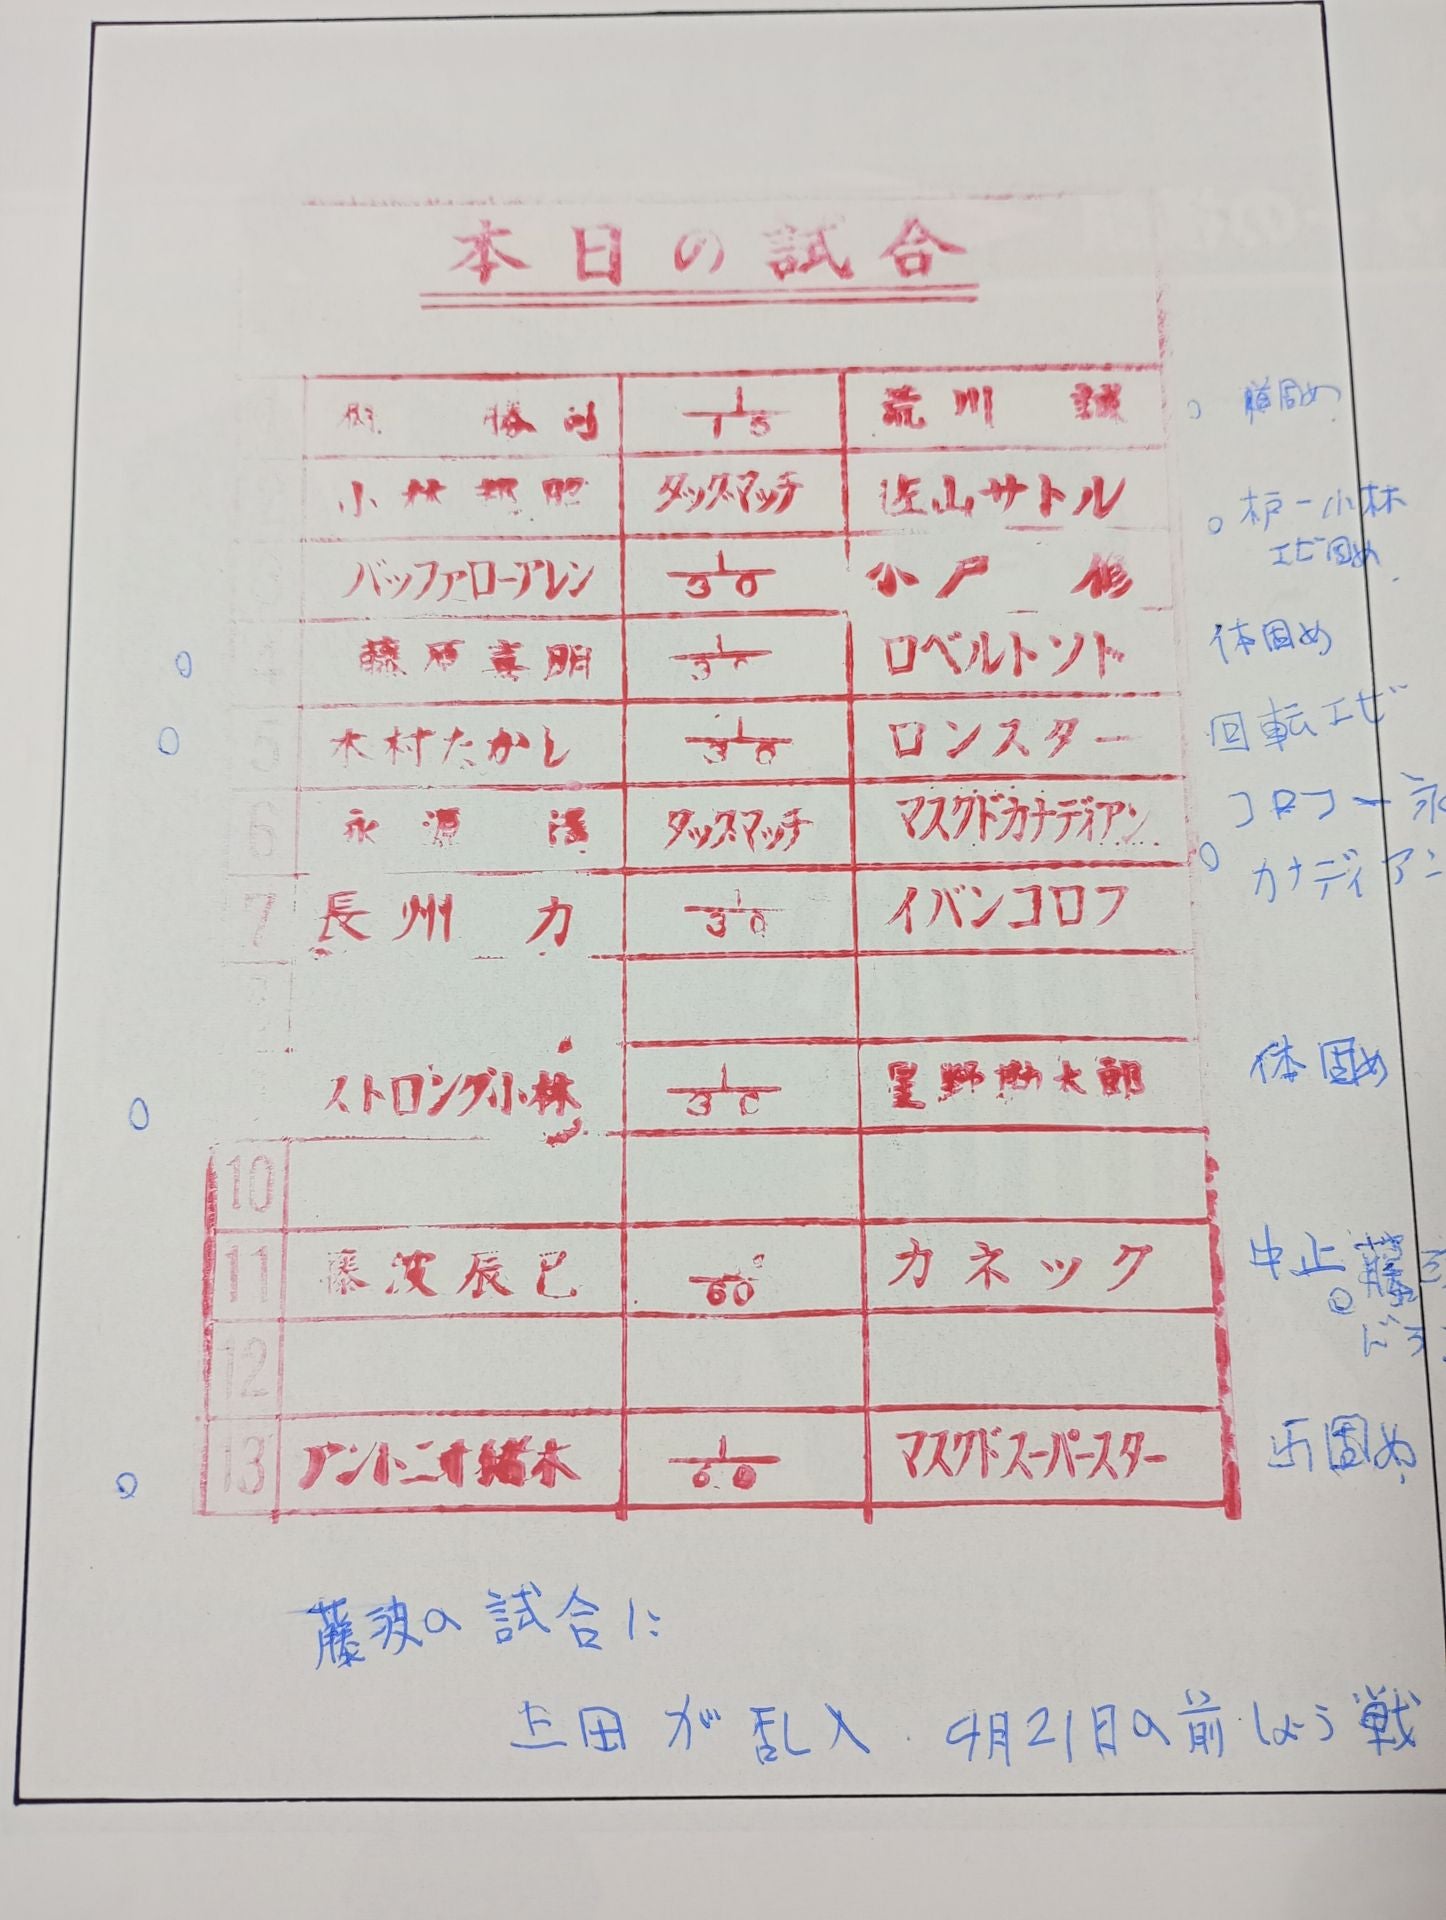 本日の試合
勝利 1/15 荒川 誠 ○ 固め
小林邦昭 タッグマッチ 佐山サトル ○ 木戸ー小林
エビ固め
バッファローアレン 1/30 小戸 修
4 ○ 藤原喜明 1/30 ロベルトソト 体固め
5 ○ 木村たかし 1/30 ロンスター 回転エビ
6 永源 遙 タッグマッチ マスクドカナディアン コロフー永
○ カナディアン
7 長州 力 1/30 イバンコロフ
○ ストロング小林 1/30 星野勘太郎 体固め
10
11 藤波辰巳 /60 カネック 中止 藤
○
12
13 ○ アントニオ猪木 1/60 マスクドスーパースター 固め
藤波の試合に
上田が乱入.4月21日の前しょう戦